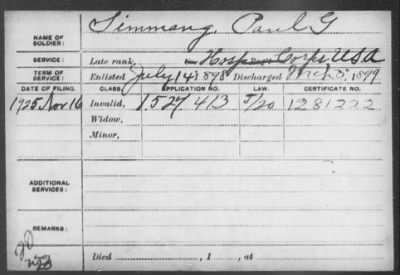 Simmang, Paul G
NAME OF SOLDIER:
SERVICE: Late rank, Hosp Corps U.S.A
TERM OF SERVICE: Enlisted July 14 1898 Discharged Mch 3, 1899
DATE OF FILING. CLASS. APPLICATION NO. LAW. CERTIFICATE NO.
1925 Nov 16 Invalid, 1.527.413 5/20 1281222
Widow,
Minor,
ADDITIONAL SERVICES:
REMARKS:
Died , 1 , at